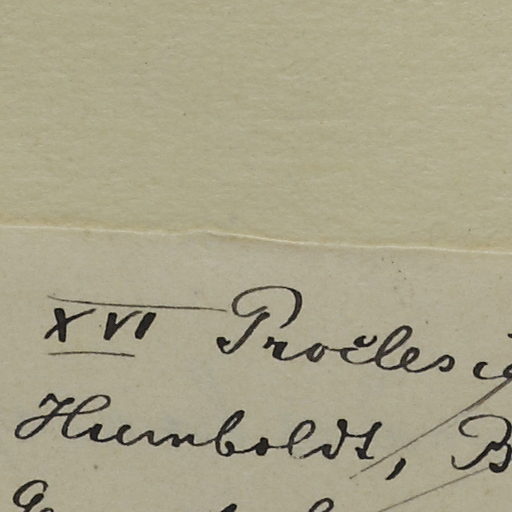 XVI Pročles
Humboldt, B